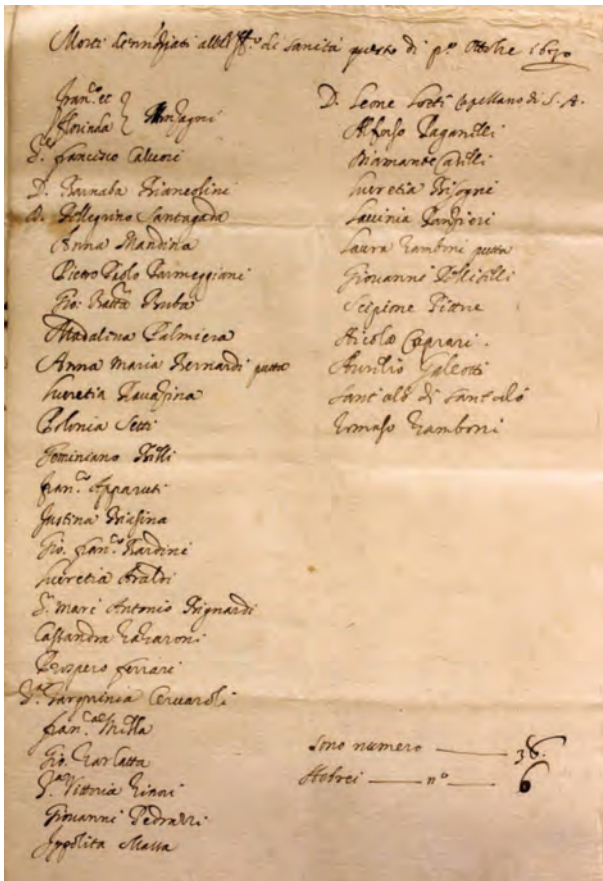 Morti denontiati all' Off.º di Sanità questo di p.º Ottobre 1630
Fran.co et
Florinda } Monzagni
S.r Francisco Calcori
D. Barnaba
D. Pellegrino Santagada
Anna Mandina
Pietro Paolo Parmeggiani
Gio: Batta Buba
Madalina Palmiera
Anna Maria Bernardi putta
Lucretia
Polonia Setti
Geminiano Billi
Fran.co Apparuti
Justina Biasina
Gio. Fran.co Nardini
Lucretia Araldi
S.r Marc Antonio Rignardi
Cassandra
Prospero Ferrari
S.ra Tarquinia Cervaroli
Fran.ca Milla
Gio.
S.ra Vittoria
Giovanni Pedrazzi
Ippolita Massa
D. Leone Setti Capellano di S. A.
Alfonso Paganelli
Diamante Carilli
Lucretia
Lavinia Panfieri
Laura Zamboni putta
Giovanni Pellicelli
Scipione
Nicolo Caprari.
Aurelio Galeotti
Sant'alò di Sant'alò
Tomaso Zamboni
Sono numero —— 36.
Hebrei —— nº —— 6